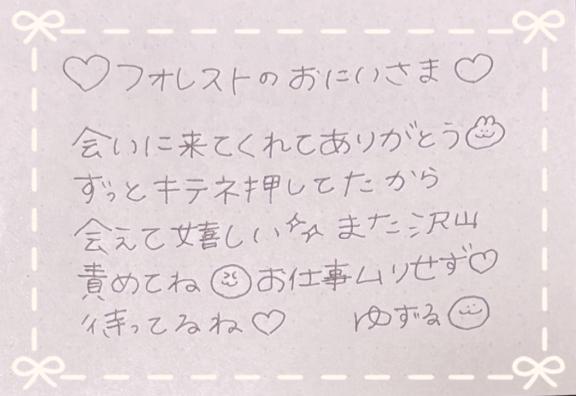 ♡フォレストのおにいさま♡
会いに来てくれてありがとう
ずっとキテネ押してたから
会えて嬉しい☆☆また沢山
責めてね お仕事ムリせず♡
待ってるね♡ ゆずる